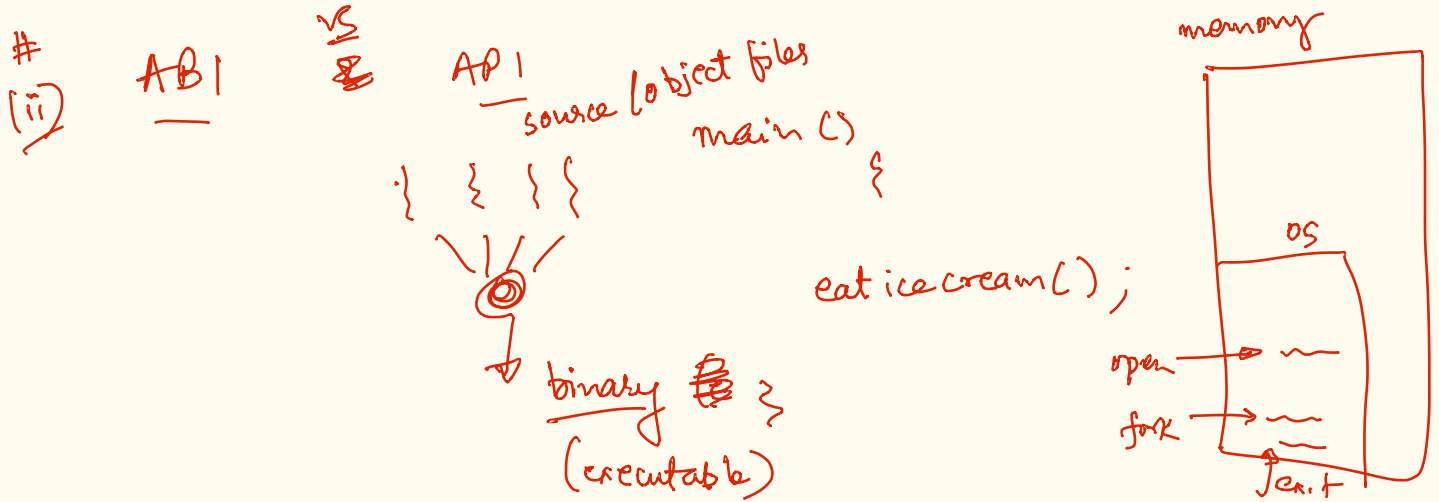 #
(ii)
ABI vs API
source/object files
main()
{
eat ice cream();
}
binary
(executable)
memory
OS
open
fork
exit